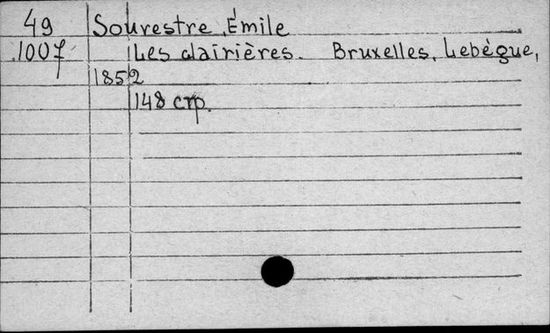 49 Souvestre, Émile
1007 Les clairières. Bruxelles, Lebègue,
1852
148 стр.